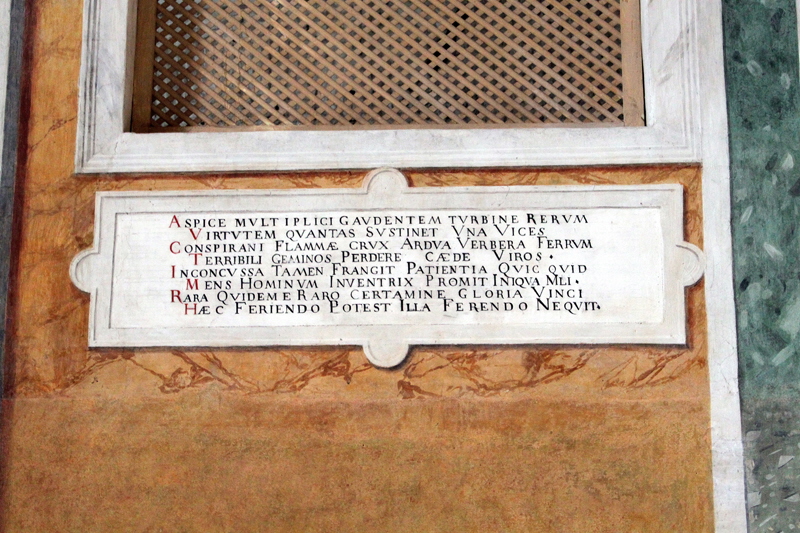 ASPICE MVLTIPLICI GAVDENTEM TVRBINE RERVM
VIRTVTEM QVANTAS SVSTINET VNA VICES
CONSPIRANI FLAMMÆ CRVX ARDVA VERBERA FERRVM
TERRIBILI GEMINOS PERDERE CÆDE VIROS·
INCONCVSSA TAMEN FRANGIT PATIENTIA QVIC QVID
MENS HOMINVM INVENTRIX PROMIT INIQVA MLI·
RARA QVIDEM E RARO CERTAMINE GLORIA VINCI
HÆC FERIENDO POTEST ILLA FERENDO NEQVIT·